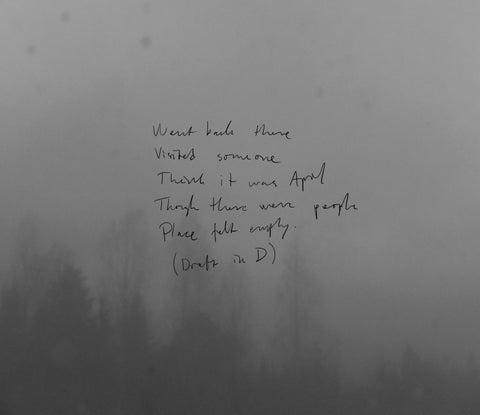 Went back there
Visited someone
Think it was April
Though there were people
Place felt empty.
(Draft in D)